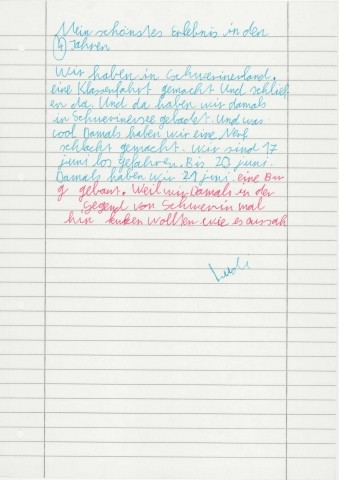 Mein schönstes Erlebnis in den
4 Jahren
Wir haben in Schwerinerland.
eine Klassenfahrt gemacht Und schlief
en da. Und da haben wir damals
in Schwerinersee gebadet. Und was
cool Damals haben wir eine Nerf
schlacht gemacht. Wir sind 17
juni los gefahren. Bis 20 juni.
Damals haben wir 21 juni eine Bur
g gebaut. Weil wir Damals in der
Gegend von Schwerin mal
hin kuken wollten wie es aussah